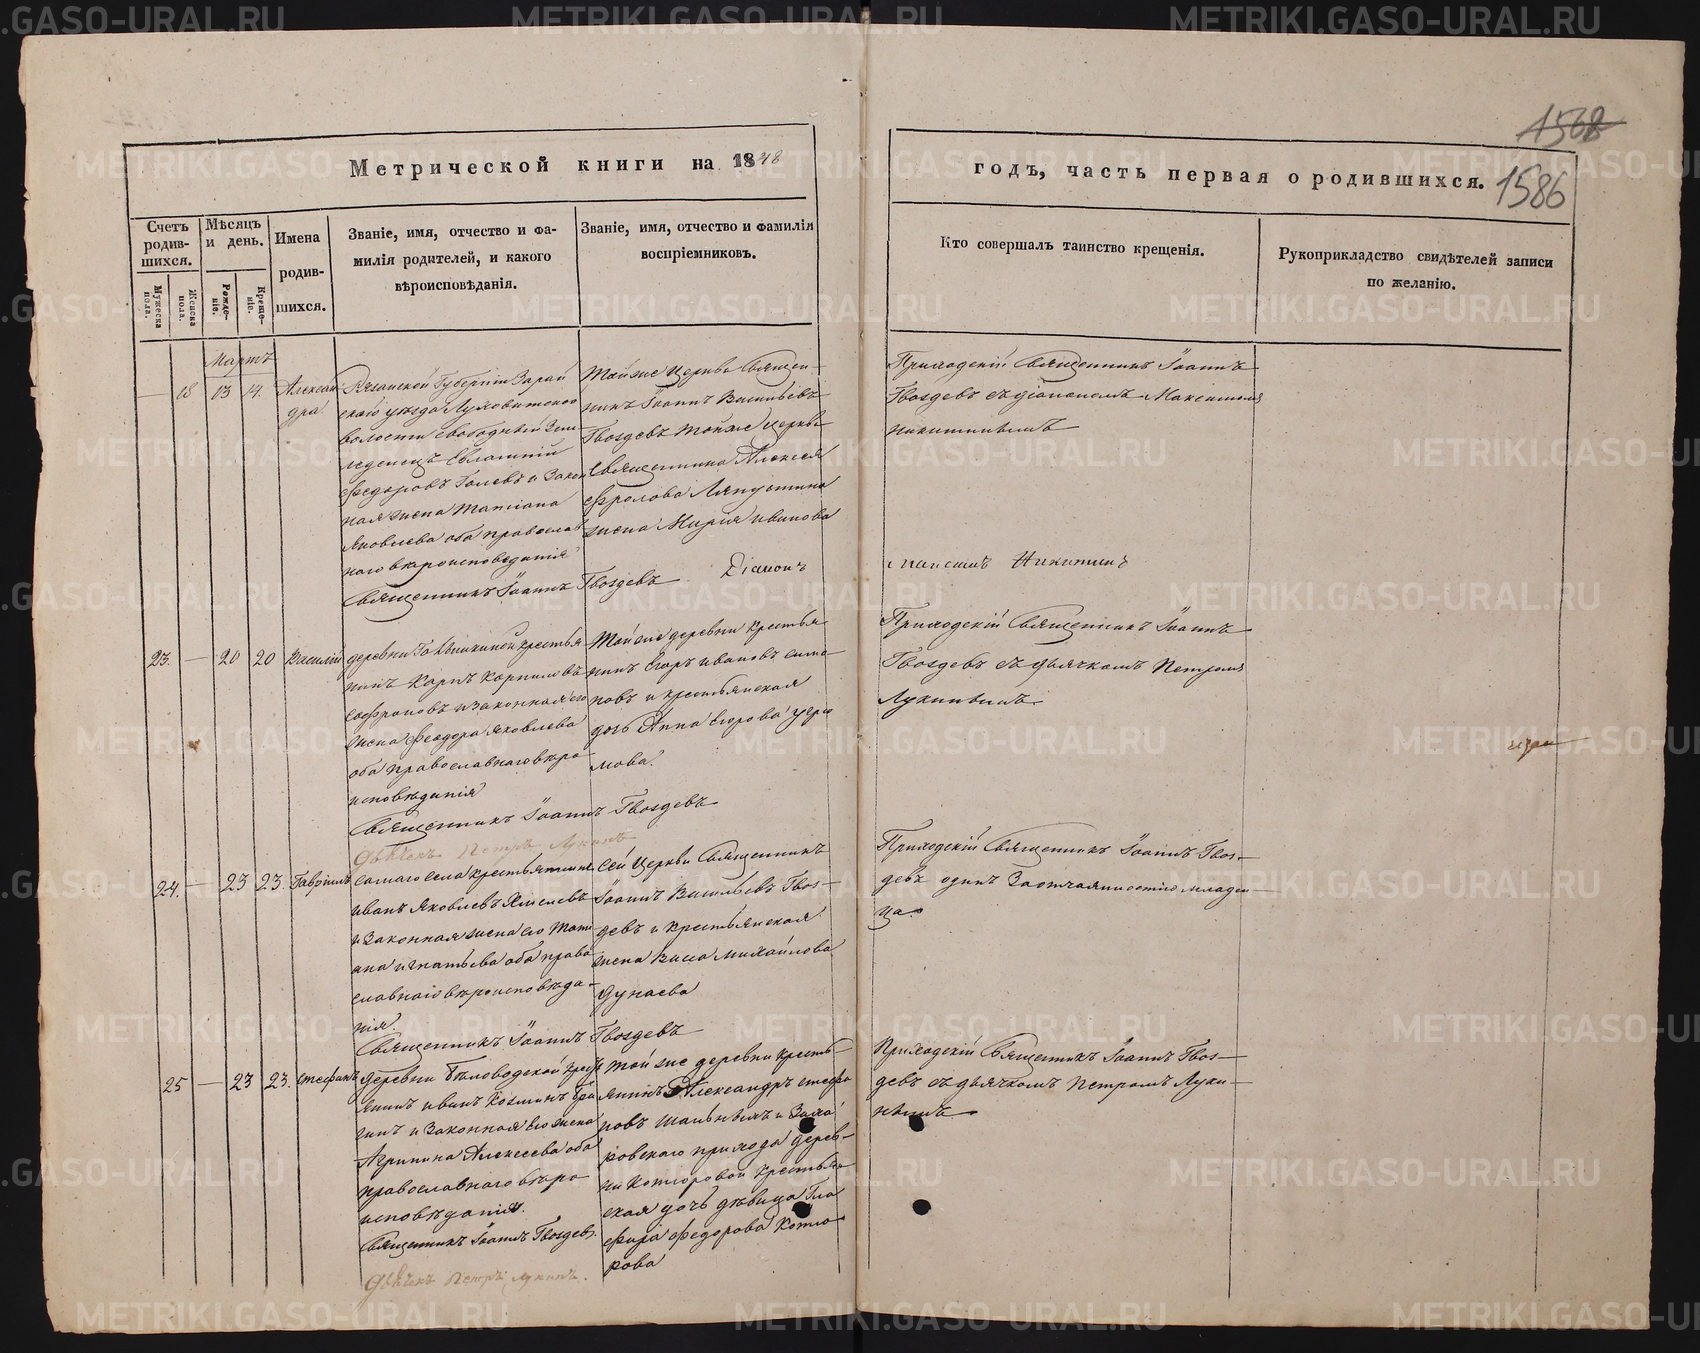 1568
1586
Метрической книги на 1848
годъ, часть первая о родившихся.
Счетъ родив-шихся.
Мужеска пола.
Женска пола.
Мѣсяцъ и день.
Рожде-ніе.
Креще-ніе.
Имена родив-шихся.
Званіе, имя, отчество и фа-
милія родителей, и какого
вѣроисповѣданія.
Званіе, имя, отчество и фамилія
воспріемниковъ.
Кто совершалъ таинство крещенія.
Рукоприкладство свидѣтелей записи
по желанію.
Мартъ
— 18 13 14. Алексан
дра
Рязанской Губерніи Зарай
скаго уѣзда
волости свободный Зем
леделецъ
Федоровъ и Закон
ная жена Татіана
Яковлева оба православ
наго вѣроисповѣданія
Тойже Церкви Священ-
никъ Іоаннъ Васильевъ
Гвоздевъ Тойже церкви
Священника Алексея
Фролова
жена Марія Иванова
Приходскій Священникъ Іоаннъ
Гвоздевъ съ діакономъ Максимомъ
Никитинымъ
Священникъ Іоаннъ Гвоздевъ Діаконъ
Максимъ Никитинъ
23. — 20 20 Василій
деревни крестья
нинъ Карпъ Корниловъ
Сафроновъ и законная его
жена Феодора Яковлева
оба православнаго вѣро
исповѣданія
Тойже деревни крестья
нинъ Егоръ Ивановъ Симо-
новъ и крестьянская
дочь Анна Егорова
мова.
Приходскій Священникъ Іоаннъ
Гвоздевъ съ дьячкомъ Петромъ
Лукинымъ
Священникъ Іоаннъ Гвоздевъ
Дьячекъ Петръ Лукинъ
24. — 23 23. Гавріилъ
Самаго села крестьянинъ
Иванъ Яковлевъ
и Законная жена его Тати
ана Игнатьева оба право
славнаго вѣроисповѣда-
нія.
Сей Церкви Священникъ
Іоаннъ Васильевъ Гвоз-
девъ и крестьянская
жена Васса Михайлова
Дунаева
Приходскій Священникъ Іоаннъ Гвоз-
девъ одинъ За отчаянностію младен-
ца
Священникъ Іоаннъ Гвоздевъ
25 — 23 23. Стефанъ
деревни Беловодской крест
янинъ Иванъ Козминъ
и Законная его жена
Агрипина Алексеева оба
православнаго вѣро
исповѣданія.
Той же деревни кресть-
янинъ Александръ Стефа
новъ и
ровскаго прихода дерев-
ни Комаровой крестьян
ская дочь девица Гла
фира Федорова Кома
рова
Приходскій Священникъ Іоаннъ Гвоз-
девъ съ дьячкомъ Петромъ Луки-
нымъ
Священникъ Іоаннъ Гвоздевъ.
Дьячекъ Петръ Лукинъ.
METRIKI.GASO-URAL.RU